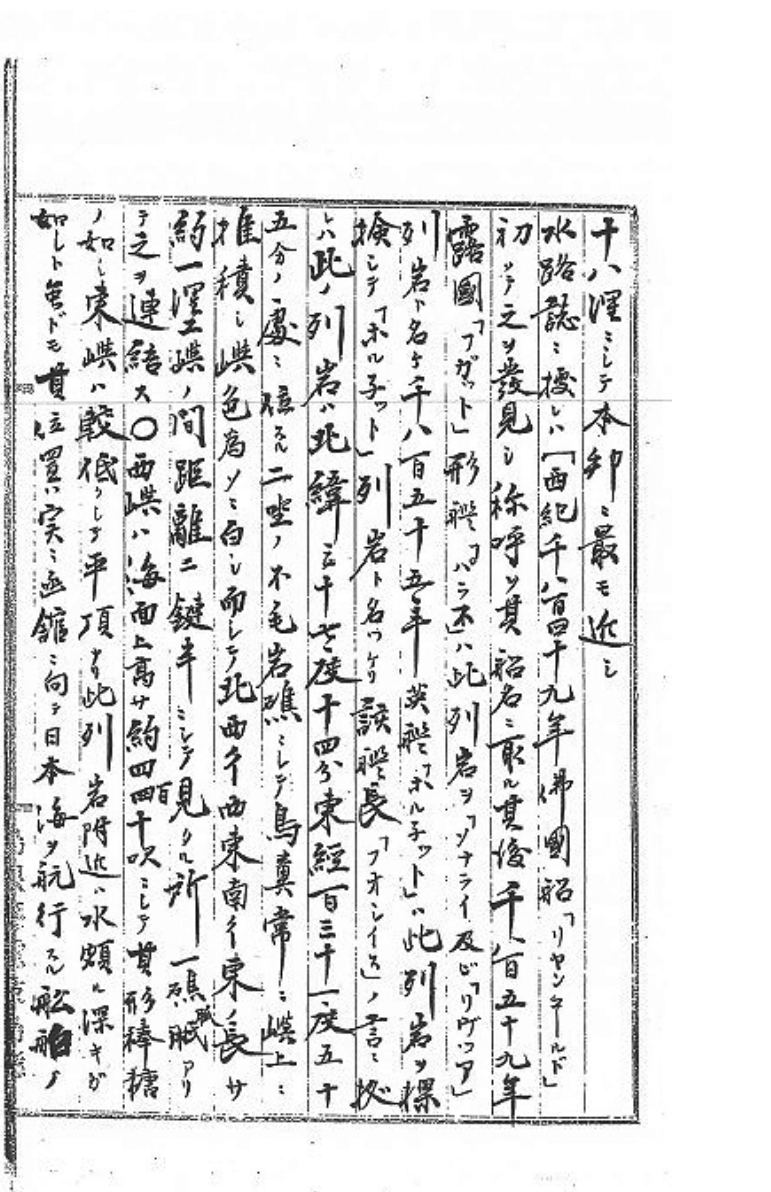 十八浬ニシテ本邦ニ最モ近シ
水路誌ニ據レハ「西紀千八百四十九年佛國船「リヤンコールド」
初メテ之ヲ發見シ称呼ヲ其船名ニ取ル其後千八百五十九年
露國「フガット」形艦「パラス」ハ此列岩ヲ「メナライ及ビ「ヲリヴツア」
列岩ト名ケ千八百五十五年英艦「ホル子ット」ハ此列岩ヲ探
檢シテ「ホル子ット」列岩ト名ツケリ該艦長「フオルシイス」ノ言ニ拠
レハ此ノ列岩ハ北緯三十七度十四分東経百三十一度五十
五分ノ處ニ位スル二坐ノ不毛岩礁ニシテ鳥糞常ニ嶼上ニ
堆積シ嶼色為メニ白シ而シテ北西彳西東南彳東ノ長サ
約一浬二嶼ノ間距離二鏈半ニシテ見タル所一礁脈アリ
テ之ヲ連結ス〇西嶼ハ海面上高サ約四百四十呎ニシテ其形棒糖
ノ如シ東嶼ハ較低クシテ平頂ナリ此列岩附近ハ水頗ル深キガ
如シト雖ドモ其位置ハ実ニ函館ニ向テ日本海ヲ航行スル船舶ノ